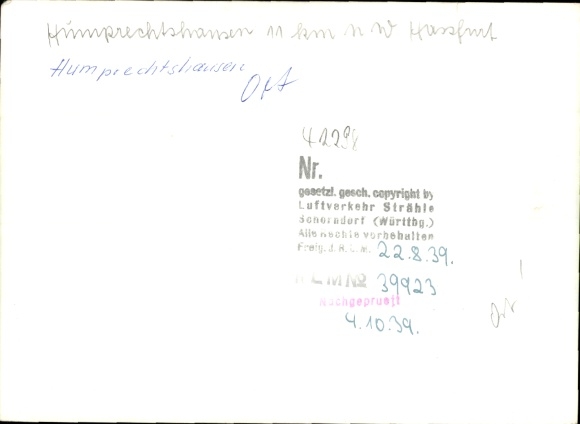 Humprechtshausen 11 km NW Hassfurt
Humprechtshausen
Ort
42298
Nr.
gesetzl. gesch. copyright by
Luftverkehr Strähle
Schorndorf (Württbg.)
Alle Rechte vorbehalten
Freig. d. R.L.M. 22.8.39.
RLM No 39923
Nachgeprüft
4.10.39.
Ort